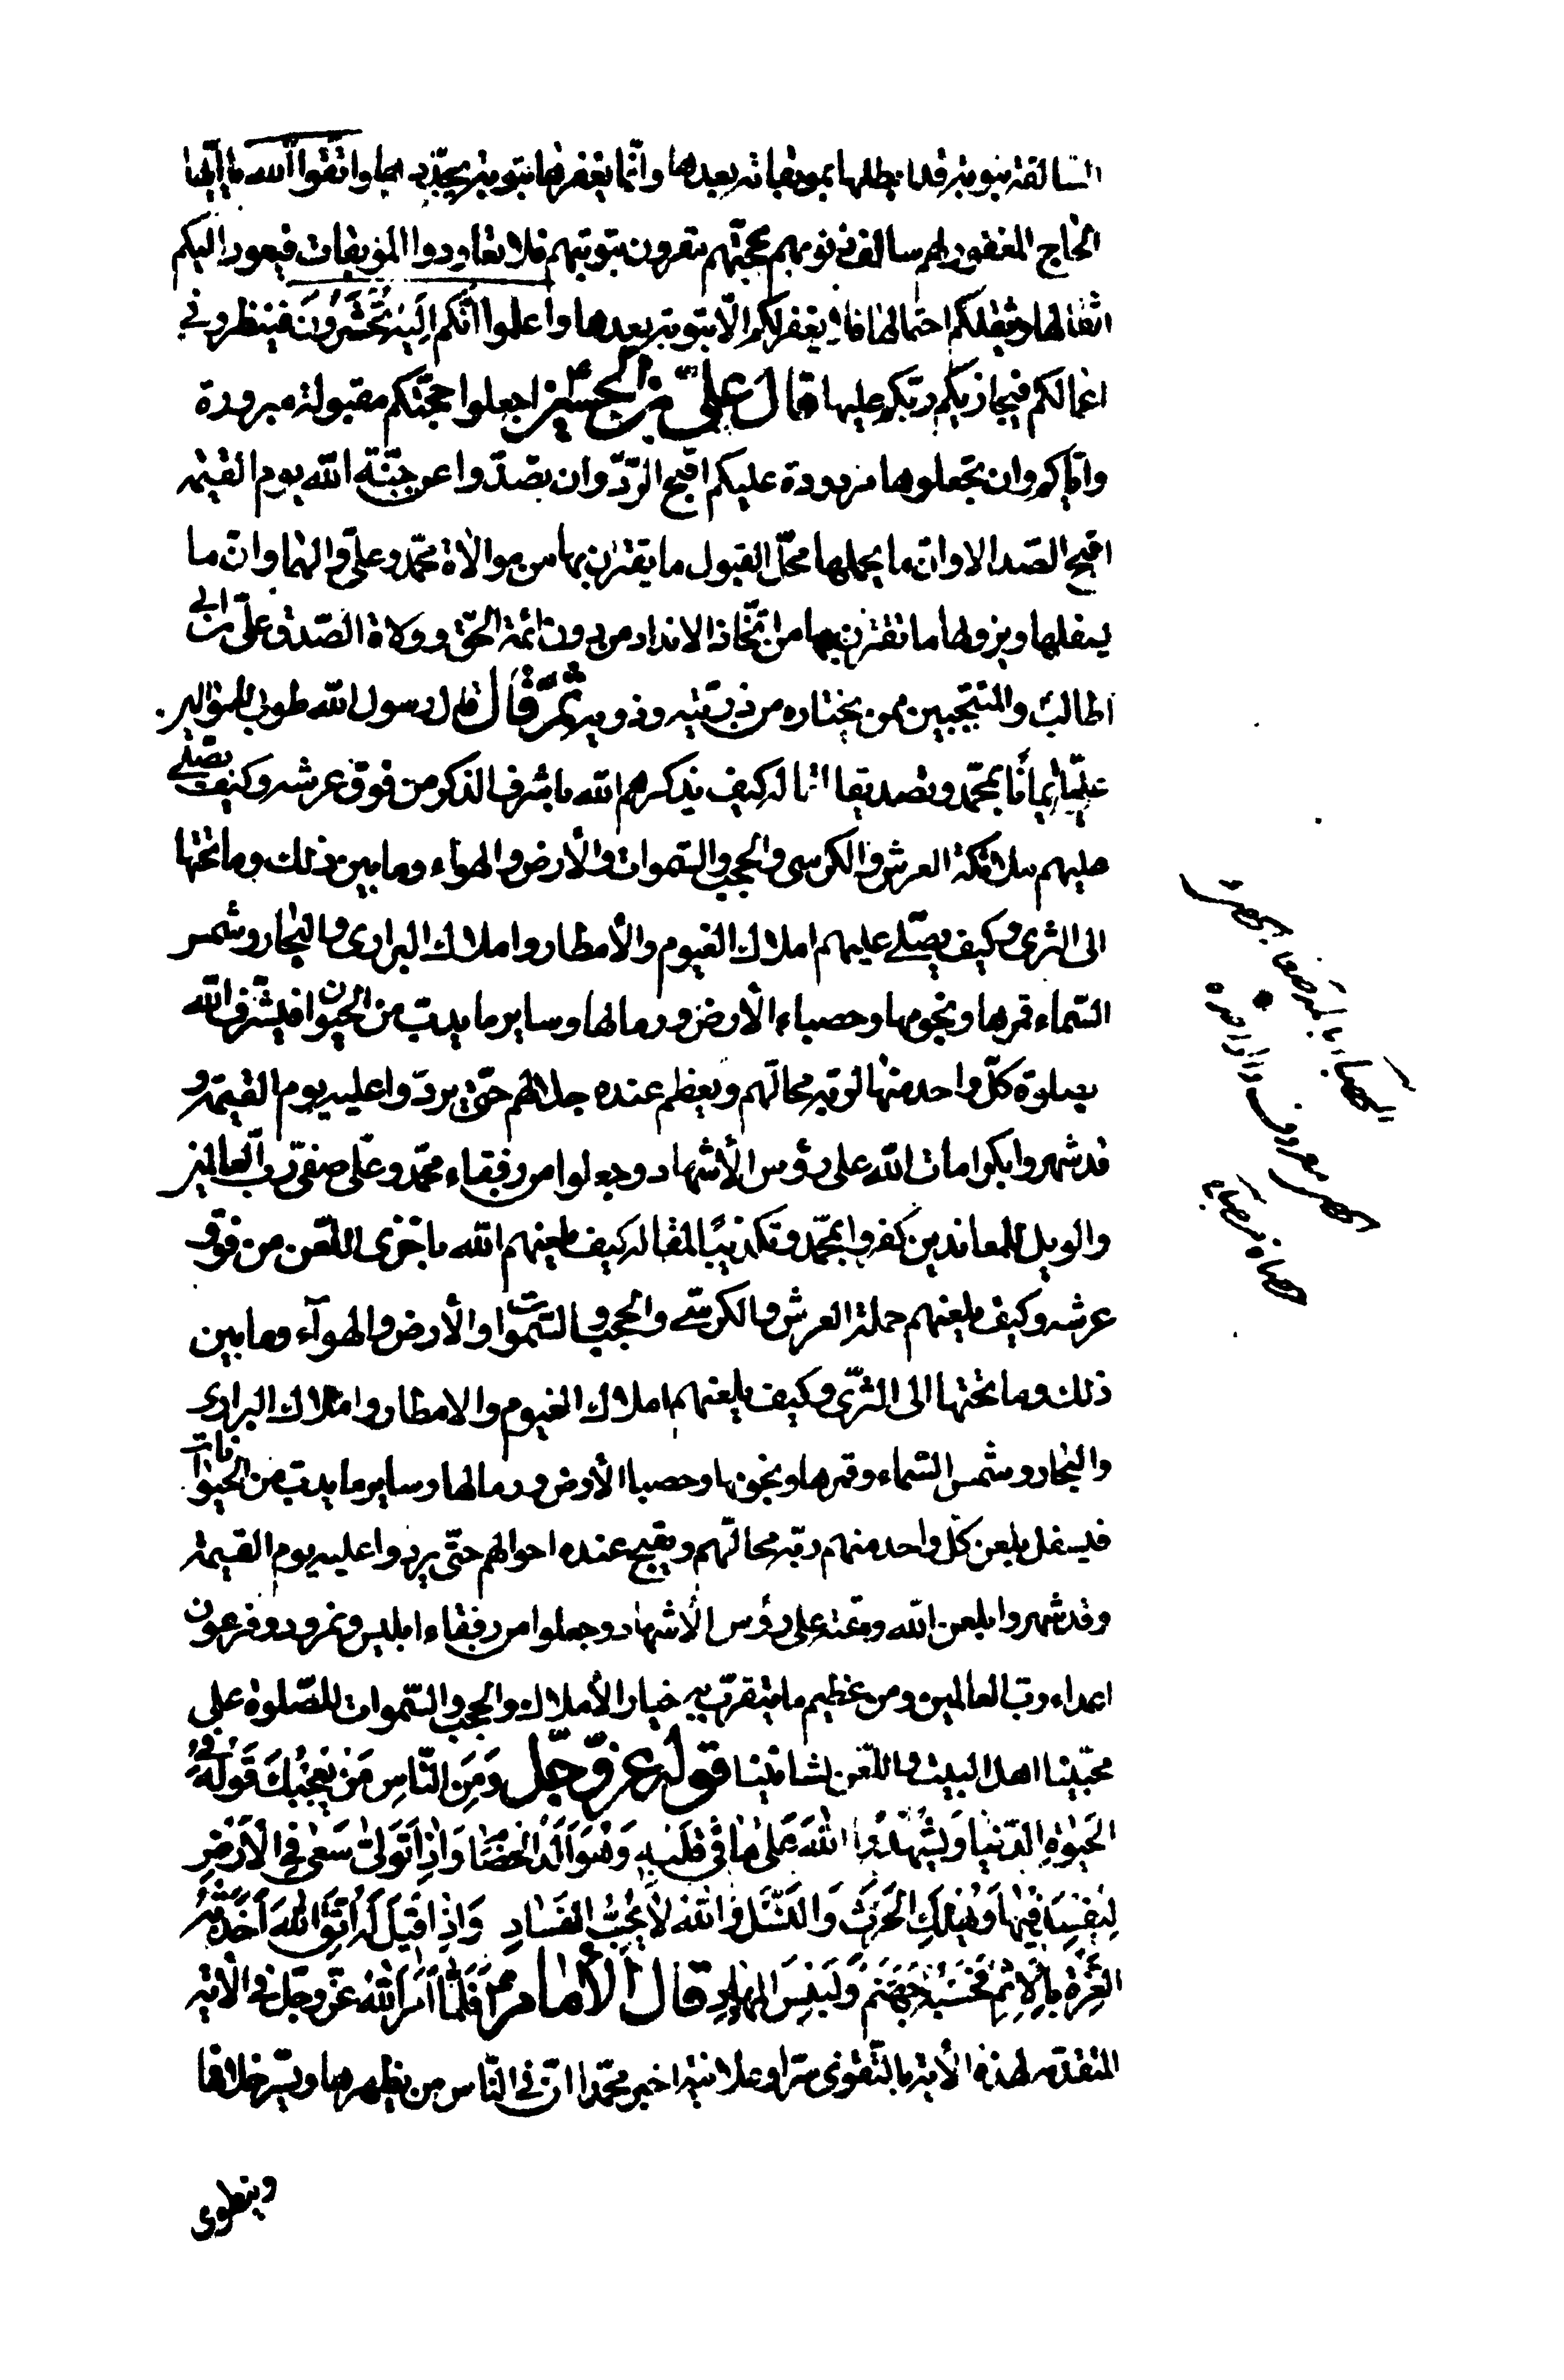 السالفة بتوبة قد ابطلها بموبقاته بعدها وانّما يغفرها بتوبة يجدّدها واتّقوا الله يا ايّها
الحاج المغفور لهم سالف ذنوبهم بحجّهم المقرون بتوبتهم فلا تعاودوا الموبقات فيعود اليكم
اثقالها ويثقلكم احتمالها فلا يغفر لكم الّا بتوبة بعدها واعلموا انّكم اِلَيْهِ تُحْشَرُونَ فينظر في
اعمالكم فيجازيكم ربّكم عليها قال علىّ بن الحسين اجعلوا حجّتكم مقبولة مبرورة
وايّاكم وان تجعلوها مردودة عليكم اقبح الرّدّ وان تصدّوا عن جنّة الله يوم القيٰمة
اقبح الصّد الا وان ما يحلها محلّ القبول ما يقترن بها من موالاة محمّد وعلىّ والهما وانّ ما
يسفلها ويرذلها ما يقترن بها من اتّخاذ الانداد من دون ائمّة الحقّ وولاة الصّدق علىّ بن ابي
طالب والمنتجبين ممن يختاره من ذرّيّته وذويه ثمّ قال قال رسول الله طوبى للموالين
عليّا ايمانًا بمحمّد وتصديقا لمقاله كيف يذكرهم الله باشرف الذكر من فوق عرشه وكيف يصلّى
عليهم ملائكة العرش والكرسى والحجب والسّموات والأرض والهواء وما بين ذلك وما تحتها
الى الثرى وكيف يصلّى عليهم املاك الغيوم والأمطار واملاك البرارى والبحار وشمس
السّماء وقمرها ونجومها وحصباء الأرض ورمالها وساير ما يدبّ من الحيوان فيشرّف الله
بصلوة كلّ واحد منها لديه محالّهم ويعظم عنده جلالهم حتّى يردّوا عليه يوم القيٰمة و
قد شهروا بكرامات الله على رؤس الأشهاد وجعلوا من رفقاء محمّد وعلىّ صفىّ ربّ العالمين
والويل للمعاندين كفرا بمحمّد وتكذيبًا لمقاله كيف يلعنهم الله باخزى اللّعن من فوق
عرشه وكيف يلعنهم حملة العرش والكرسّى والحجب والسّموات والأرض والهوآء وما بين
ذلك وما تحتها الى الثرى وكيف يلعنهم املاك الغيوم والامطار واملاك البرارى
والبحار وشمس السّماء وقمرها ونجومها وحصبا الأرض ورمالها وساير ما يدبّ من الحيوانات
فيسفل بلعن كل واحد منهم لديه محالّهم ويقبح عنده احوالهم حتّى يردوا عليه يوم القيمة
وقد شهروا بلعن الله ومقته على رؤس الأشهاد وجعلوا من رفقاء ابليس ونمرود وفرعون
اعداء ربّ العالمين ومن عظيم ما يتقرّب به خيار الأملاك والحجب والسّموات للصّلوة على
محبّينا اهل البيت واللّعن لشانئينا قوله عزّ وجلّ وَمِنَ النّاسِ مَنْ يُعْجِبُكَ قَوْلُهُ فِى
الحَيٰوةِ الدّنيا وَيُشْهِدُ اللهَ عَلىٰ مٰا فى قَلْبِهِ وَهُوَ اَلَدُّ الخِصٰامِ وَاِذٰا تَوَلّىٰ سَعىٰ فِى الْاَرْضِ
لِيُفْسِدَ فيهٰا وَيُهْلِكَ الحَرْثَ وَالنَّسْلَ وَاللهُ لٰا يُحِبُّ الفَسٰادِ وَاِذٰا قيلَ لَهُ اتَّقِ اللهَ اَخَذَتْهُ
العِزَّةُ بِالْاِثْمِ فَحَسْبُهُ جَهَنَّمُ وَلَبِئْسَ المِهٰادِ قال الأمام فَلَمّا اَمَرَ اللهُ عزّ وجلّ فى الأية
المتقدّمة لهذه الأية بالتّقوى سرّا وعلانية اخبر محمّدا انّ فى النّاس من يظهرها ويسرّ خلافها
وينطوى